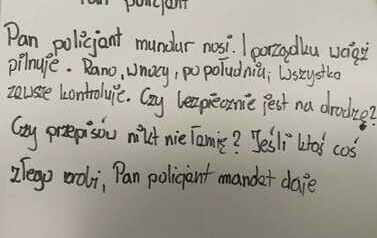 Pan policjant
Pan policjant mundur nosi. I porządku wciąż
pilnuje. Rano, w nocy, po południu, Wszystko
zawsze kontroluje. Czy bezpiecznie jest na drodze?
Czy przepisów nikt nie łamię? Jeśli ktoś coś
złego robi, Pan policjant mandat daje